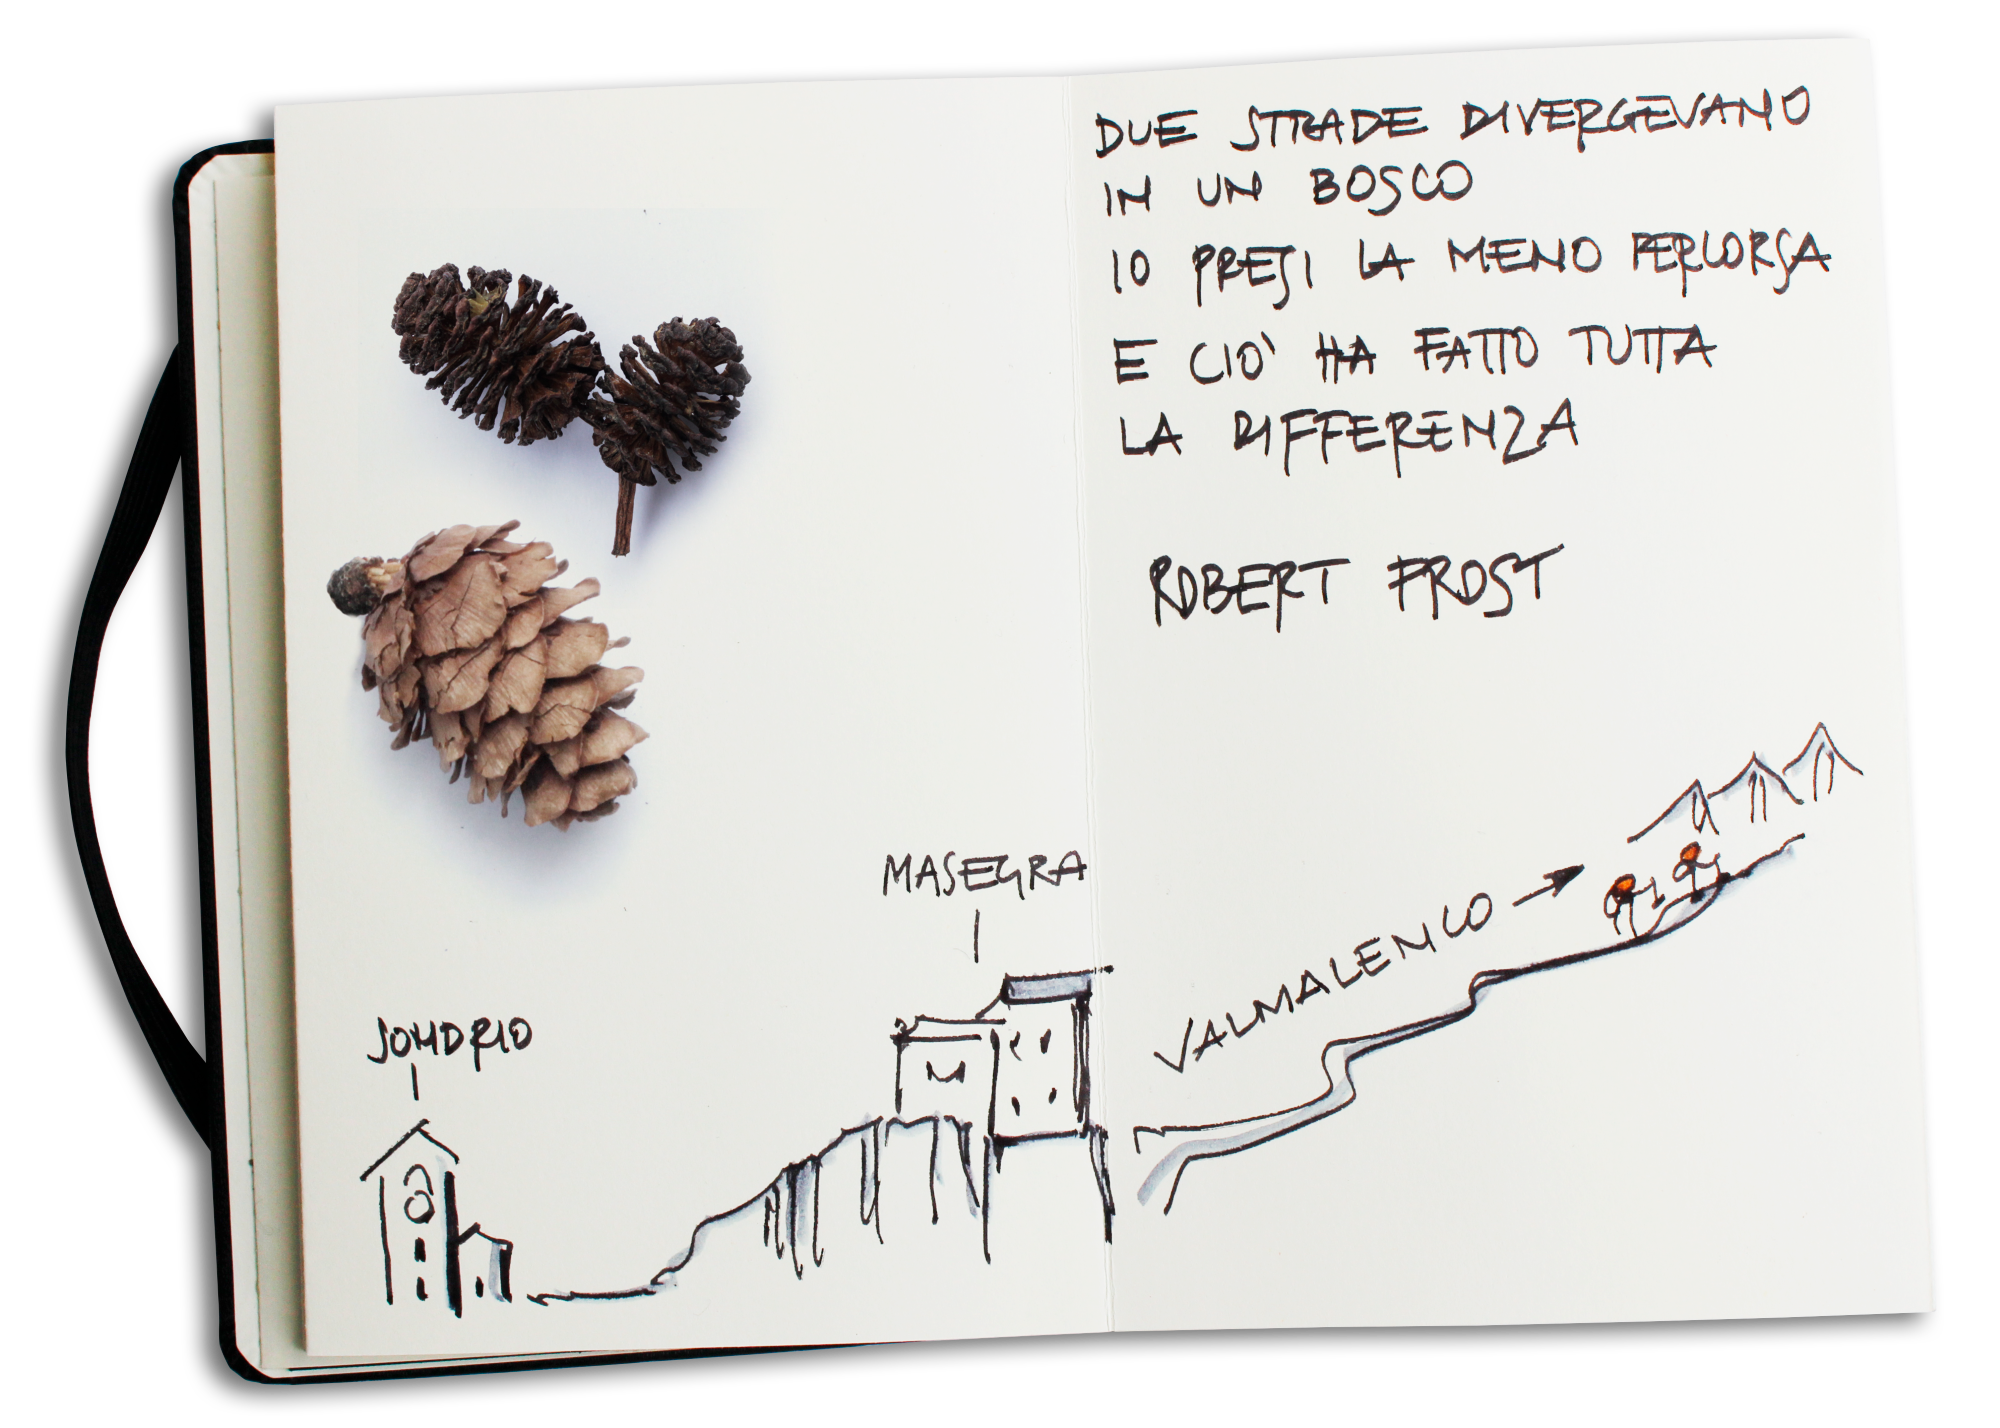 DUE STRADE DIVERGEVANO
IN UN BOSCO
IO PRESI LA MENO PERCORSA
E CIO' HA FATTO TUTTA
LA DIFFERENZA
ROBERT FROST
MASEGRA
VALMALENCO
SONDRIO